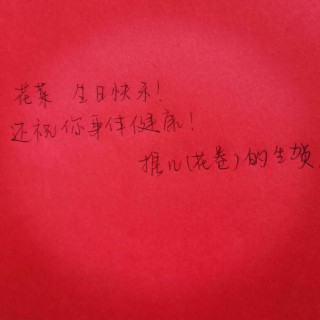 花菜 生日快乐!
还祝你身体健康!
推儿(花卷)的生贺